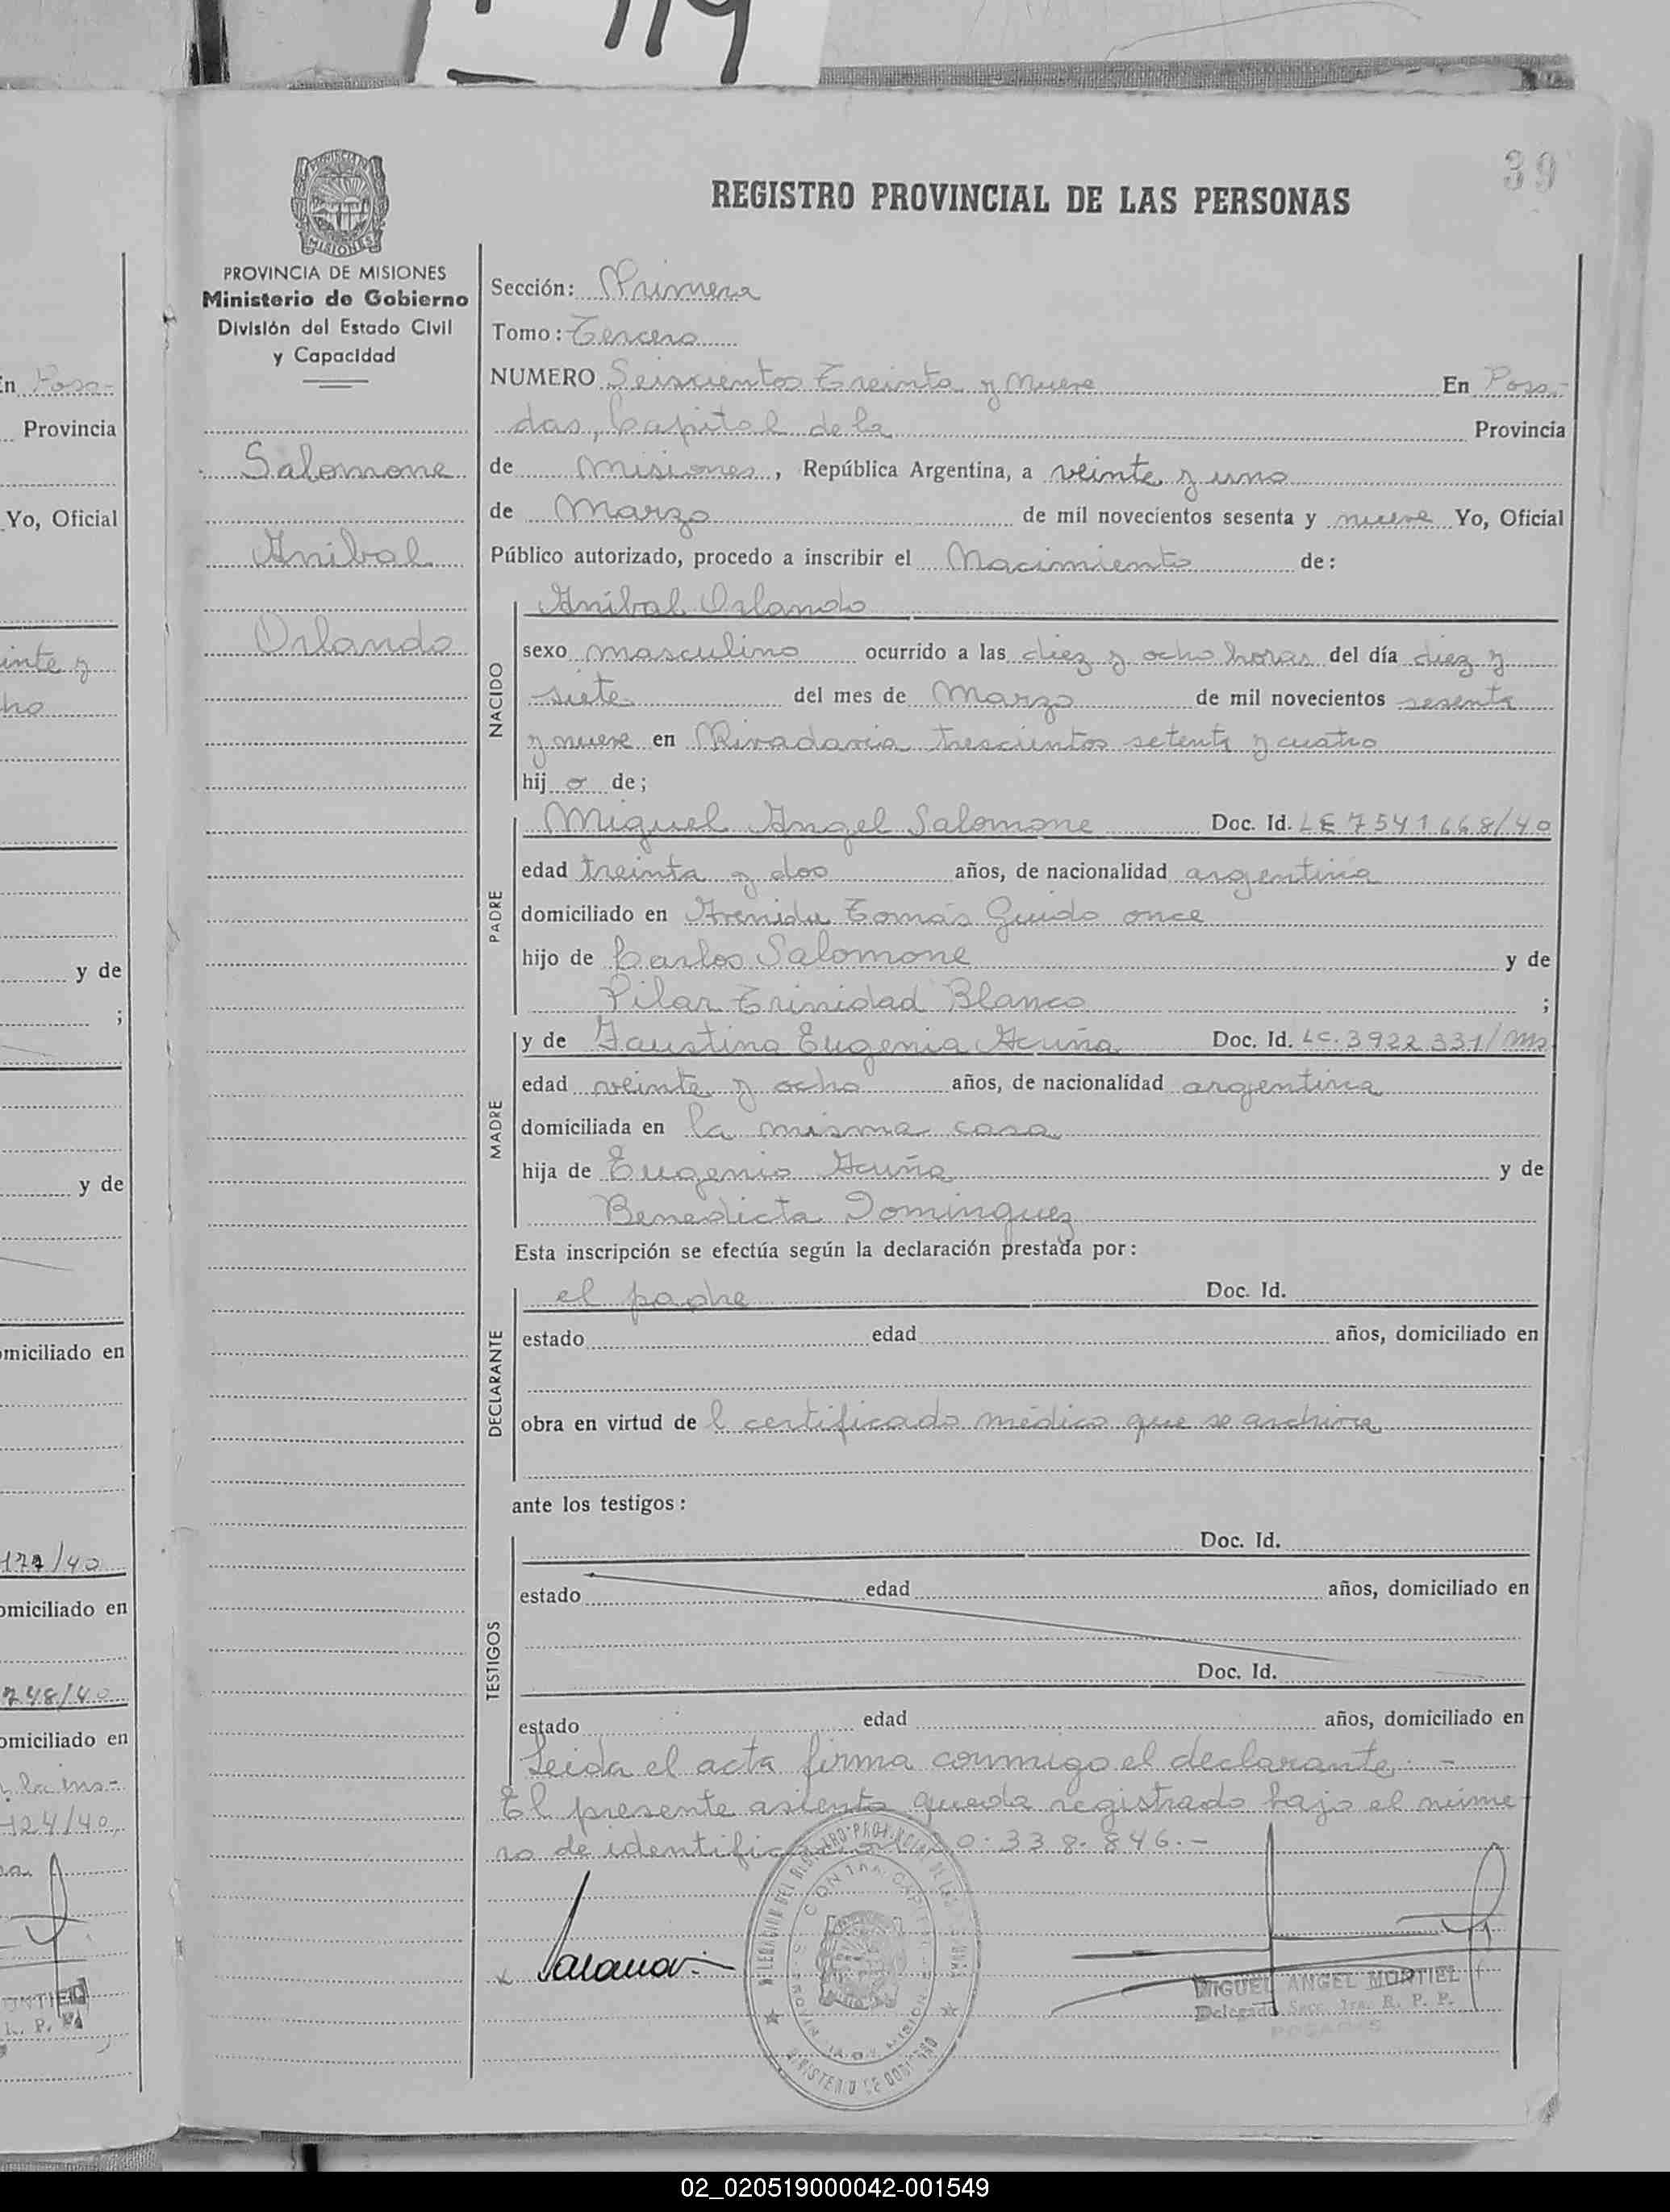 119
39
REGISTRO PROVINCIAL DE LAS PERSONAS
MISIONES
PROVINCIA DE MISIONES
Ministerio de Gobierno
División del Estado Civil
y Capacidad
Salomone
Anibal
Orlando
Sección: Primera
Tomo: Tercero
NUMERO Seiscientos Treinta y Nueve En Posa-
das, Capital de la Provincia
de Misiones, República Argentina, a veinte y uno
de Marzo de mil novecientos sesenta y nueve Yo, Oficial
Público autorizado, procedo a inscribir el Nacimiento de:
NACIDO
Anibal Orlando
sexo masculino ocurrido a las diez y ocho horas del día diez y
siete del mes de Marzo de mil novecientos sesenta
y nueve en Rivadavia trescientos setenta y cuatro
hijo de;
PADRE
Miguel Angel Salomone Doc. Id. LE 7541668/40
edad treinta y dos años, de nacionalidad argentina
domiciliado en Avenida Tomás Guido once
hijo de Carlos Salomone y de
Pilar Trinidad Blanco ;
MADRE
y de Faustina Eugenia Acuña Doc. Id. LC. 3922331/Ms
edad veinte y ocho años, de nacionalidad argentina
domiciliada en la misma casa
hija de Eugenio Acuña y de
Benedicta Dominguez
Esta inscripción se efectúa según la declaración prestada por:
DECLARANTE
el padre Doc. Id.
estado edad años, domiciliado en
obra en virtud de l certificado médico que se archiva
ante los testigos:
TESTIGOS
Doc. Id.
estado edad años, domiciliado en
Doc. Id.
estado edad años, domiciliado en
Leida el acta firma conmigo el declarante.-
El presente asiento queda registrado bajo el núme-
ro de identificación 20.338.846.-
MIGUEL ANGEL MONTIEL
Delegado Secc. 1ra. R. P. P.
POSADAS
En Posa-
Provincia
Yo, Oficial
inte y
ho
y de
;
y de
omiciliado en
177/40
omiciliado en
748/40
omiciliado en
la ins-
124/40,
ONTIEL
R. P. P.
02_020519000042-001549